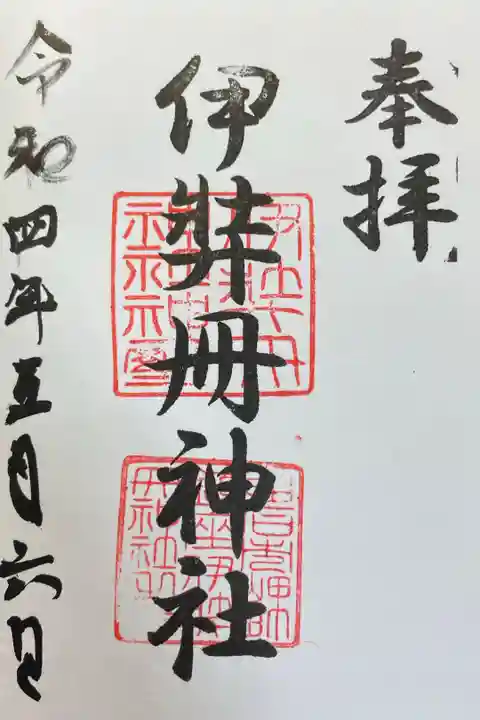 奉拝
伊弉冊神社
令和四年五月六日